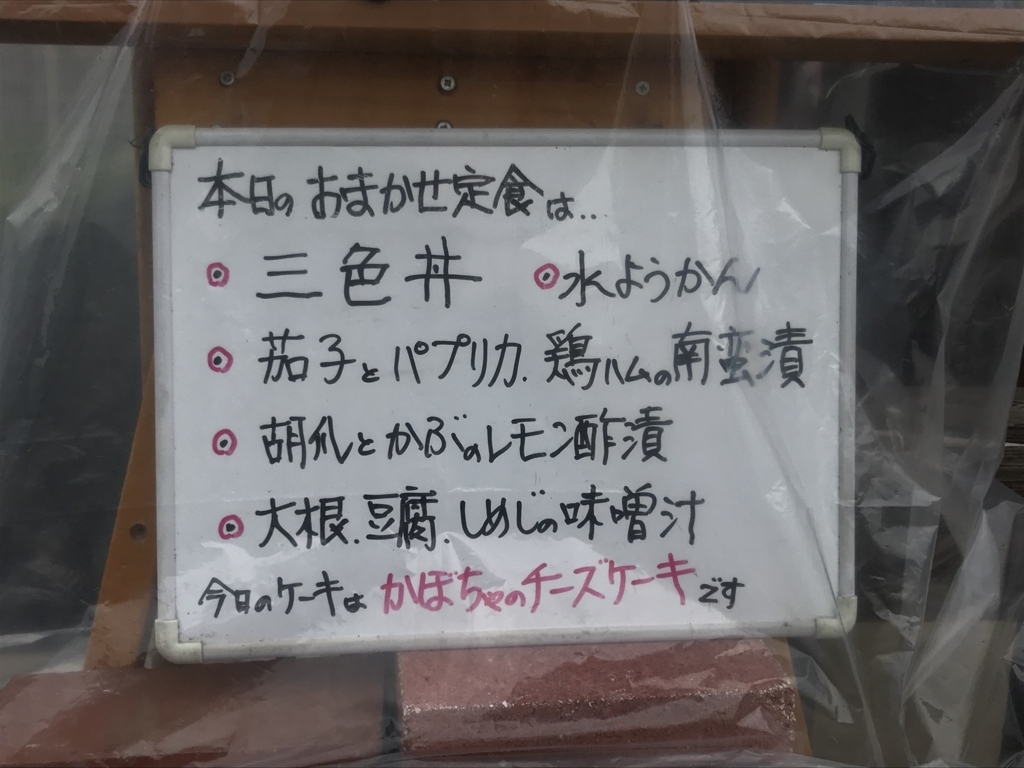 本日のおまかせ定食は...
◉ 三色丼 ◉ 水ようかん
◉ 茄子とパプリカ.鶏ハムの南蛮漬
◉ 胡瓜とかぶのレモン酢漬
◉ 大根.豆腐.しめじの味噌汁
今日のケーキはかぼちゃのチーズケーキです